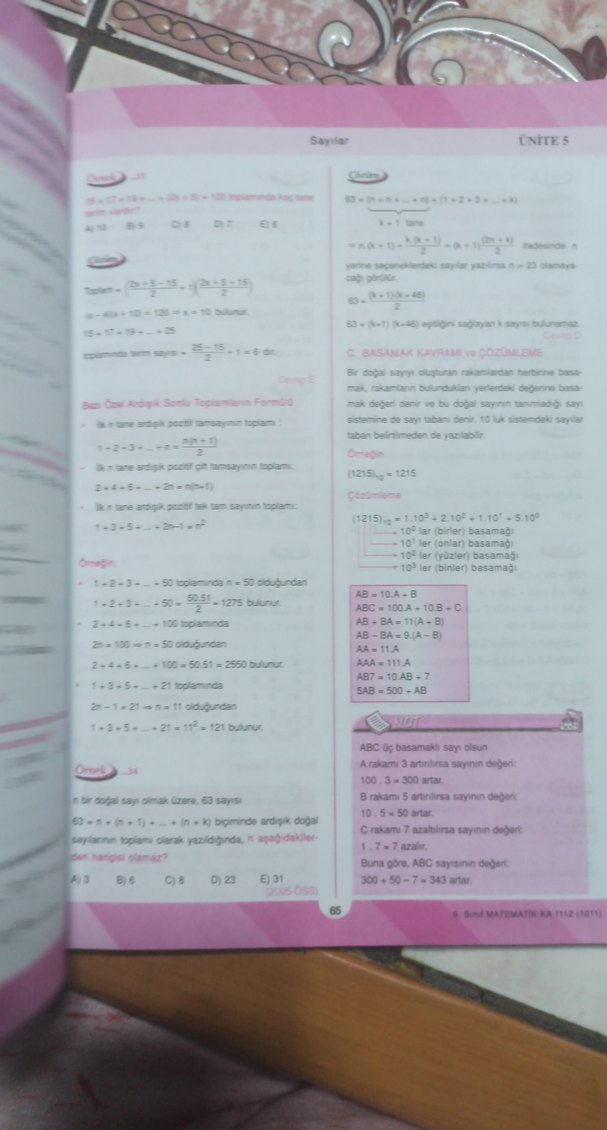 Sayılar
ÜNİTE 5
Örnek ..33
15 + 17 + 19 + ... + (2x + 5) = 120 toplamında kaç tane
terim vardır?
A) 10 B) 9 C) 8 D) 7 E) 6
Çözüm
Toplam = ((2x + 5 - 15)/2 + 1)((2x + 5 + 15)/2)
(x - 4)(x + 10) = 120 ⇒ x = 10 bulunur.
15 + 17 + 19 + ... + 25
toplamında terim sayısı = (25 - 15)/2 + 1 = 6 dır.
Cevap E
Bazı Özel Ardışık Sonlu Toplamların Formülü
- İlk n tane ardışık pozitif tamsayının toplamı :
1 + 2 + 3 + ... + n = n(n + 1)/2
- İlk n tane ardışık pozitif çift tamsayının toplamı:
2 + 4 + 6 + ... + 2n = n(n+1)
- İlk n tane ardışık pozitif tek tam sayının toplamı:
1 + 3 + 5 + ... + 2n-1 = n²
Örneğin;
- 1 + 2 + 3 + ... + 50 toplamında n = 50 olduğundan
1 + 2 + 3 + ... + 50 = 50.51/2 = 1275 bulunur.
- 2 + 4 + 6 + ... + 100 toplamında
2n = 100 ⇒ n = 50 olduğundan
2 + 4 + 6 + ... + 100 = 50.51 = 2550 bulunur.
- 1 + 3 + 5 + ... + 21 toplamında
2n - 1 = 21 ⇒ n = 11 olduğundan
1 + 3 + 5 + ... + 21 = 11² = 121 bulunur.
Örnek ..34
n bir doğal sayı olmak üzere, 63 sayısı
63 = n + (n + 1) + ... + (n + k) biçiminde ardışık doğal
sayılarının toplamı olarak yazıldığında, n aşağıdakiler-
den hangisi olamaz?
A) 3 B) 6 C) 8 D) 23 E) 31
(2005-ÖSS)
Çözüm
63 = (n + n + ... + n) + (1 + 2 + 3 + ... + k)
k + 1 tane
= n.(k + 1) + k.(k + 1)/2 = (k + 1)(2n + k)/2 ifadesinde n
yerine seçeneklerdeki sayılar yazılırsa n = 23 olamaya-
cağı görülür.
63 = (k + 1)(k + 46)/2
63 = (k+1) (k+46) eşitliğini sağlayan k sayısı bulunamaz.
Cevap D
C. BASAMAK KAVRAMI ve ÇÖZÜMLEME
Bir doğal sayıyı oluşturan rakamlardan herbirine basa-
mak, rakamların bulundukları yerlerdeki değerine basa-
mak değeri denir ve bu doğal sayının tanımladığı sayı
sistemine de sayı tabanı denir. 10 luk sistemdeki sayılar
taban belirtilmeden de yazılabilir.
Örneğin
(1215)₁₀ = 1215
Çözümleme
(1215)₁₀ = 1.10³ + 2.10² + 1.10¹ + 5.10⁰
10⁰ lar (birler) basamağı
10¹ ler (onlar) basamağı
10² ler (yüzler) basamağı
10³ ler (binler) basamağı
AB = 10.A + B
ABC = 100.A + 10.B + C
AB + BA = 11(A + B)
AB - BA = 9.(A - B)
AA = 11.A
AAA = 111.A
AB7 = 10.AB + 7
5AB = 500 + AB
NOT
ABC üç basamaklı sayı olsun
A rakamı 3 artırılırsa sayının değeri:
100 . 3 = 300 artar.
B rakamı 5 artırılırsa sayının değeri:
10 . 5 = 50 artar.
C rakamı 7 azaltılırsa sayının değeri:
1 . 7 = 7 azalır.
Buna göre, ABC sayısının değeri:
300 + 50 - 7 = 343 artar.
65
9. Sınıf MATEMATİK KA 1112 (1011)